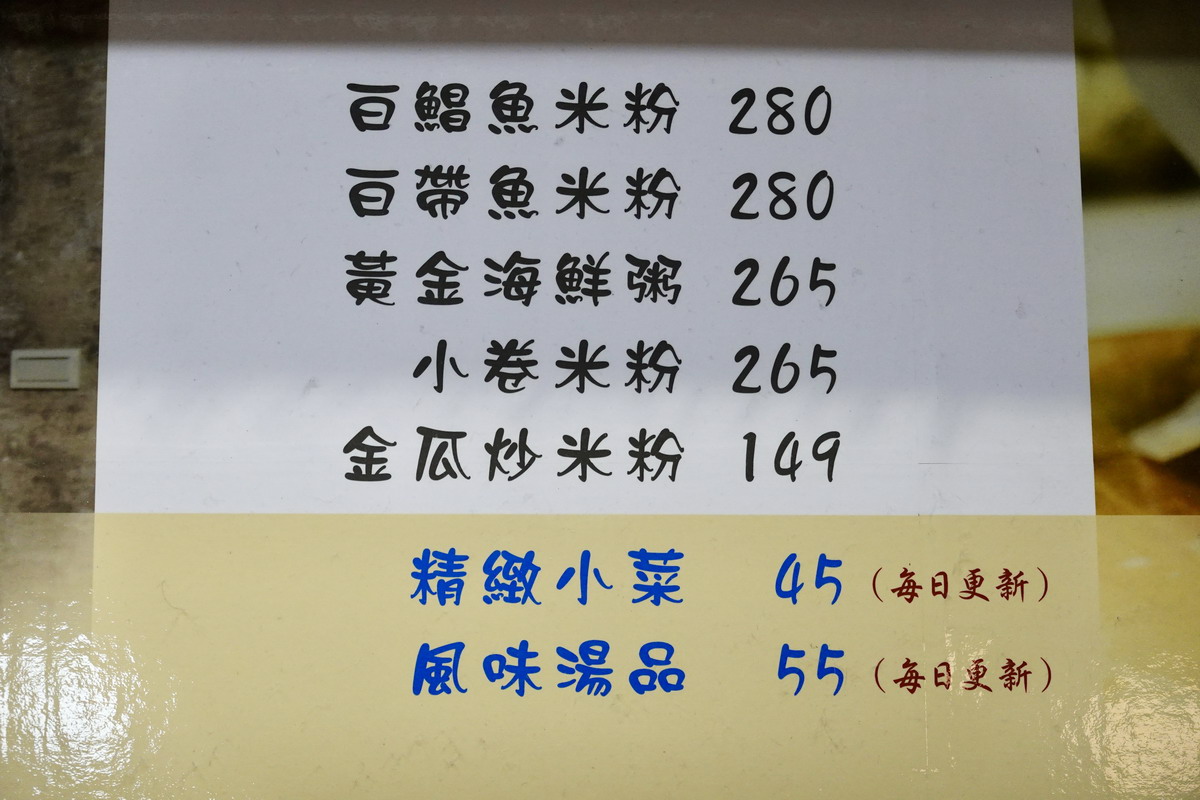 白鯧魚米粉 280
白帶魚米粉 280
黃金海鮮粥 265
小卷米粉 265
金瓜炒米粉 149
精緻小菜 45（每日更新）
風味湯品 55（每日更新）